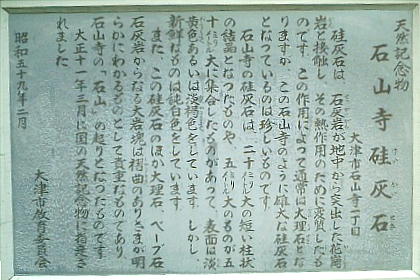 天然記念物
石山寺硅灰石
大津市石山寺一丁目
硅灰石は、石灰岩が地中から突出した花崗
岩と接触し、その熱作用のために変質したも
のです。この作用によって通常は大理石とな
りますが、この石山寺のように雄大な硅灰石
となっているのは珍しいものです。
石山寺の硅灰石は、二十ミリ大の短い柱状
の結晶となったものや、五ミリ大のものが五
十ミリ大に集合したものがあって、表面は淡
黄色あるいは淡褐色をしています。しかし、
新鮮なものは純白色をしています。
また、この硅灰石のほか大理石、ベーブ石、
石灰岩からなる大岩塊は褶曲のありさまが明
らかにわかるものとして貴重なものであり、
石山寺の「石山」の起りとなったものです。
大正十一年三月に国の天然記念物に指定さ
れました。
昭和五十九年二月
大津市教育委員会